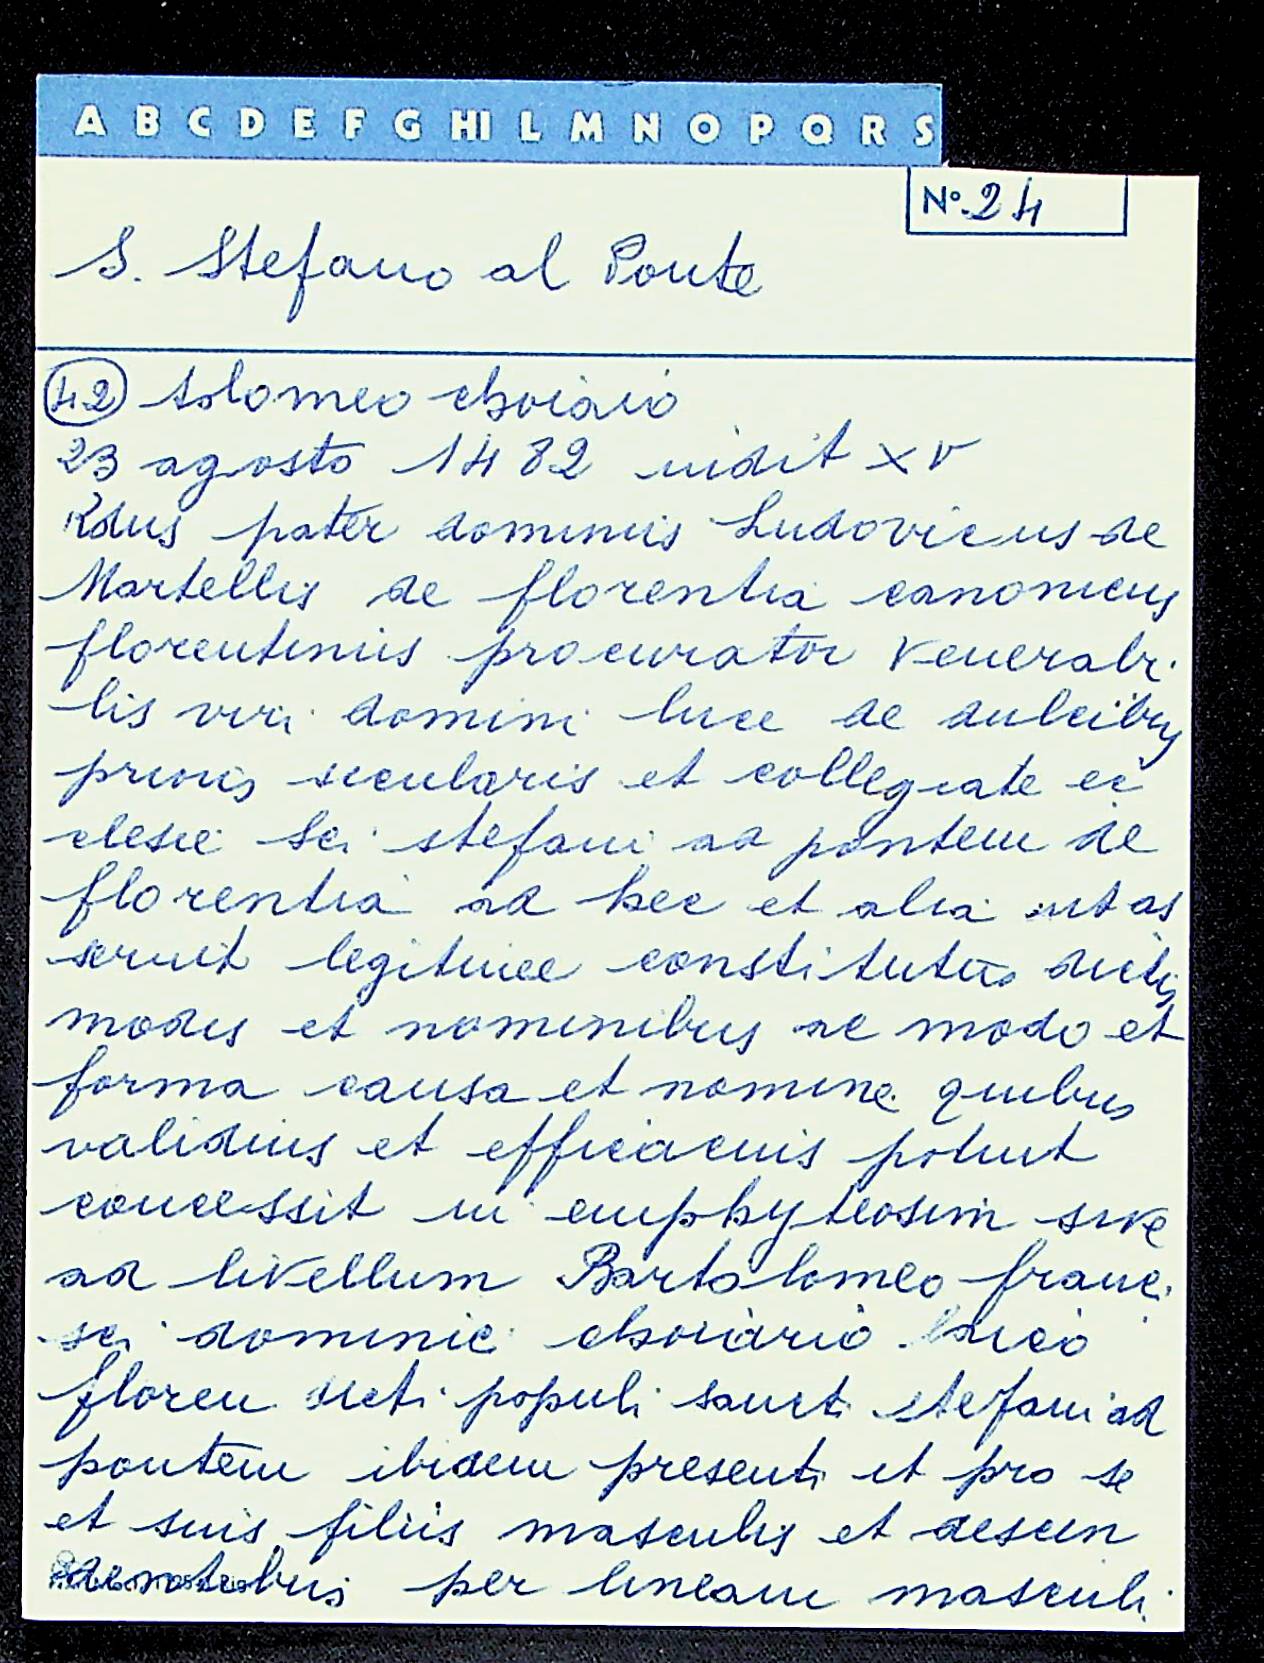 A B C D E F G HI L M N O P Q R S
No. 24
S. Stefano al Ponte
42 tolomeo choiaio
23 agosto 1482 indit XV
Rdus pater dominus Ludovicus de
Martellis de florentia canonicus
florentinus procurator venerabi
lis viri domini luce de dulcibus
prioris secularis et collegiate ec
clesie Sci stefani ad pontem de
florentia ad hec et alia ut as
seruit legitime constitutus dictis
modis et nominibus ac modo et
forma causa et nomine quibus
validius et efficacius potuit
concessit in emphyteosim sive
ad livellum Bartolomeo franci
sci dominici choiario laico
floren dicti populi sancti stefani ad
pontem ibidem presenti et pro se
et suis filiis masculis et descen
dentibus per lineam masculi